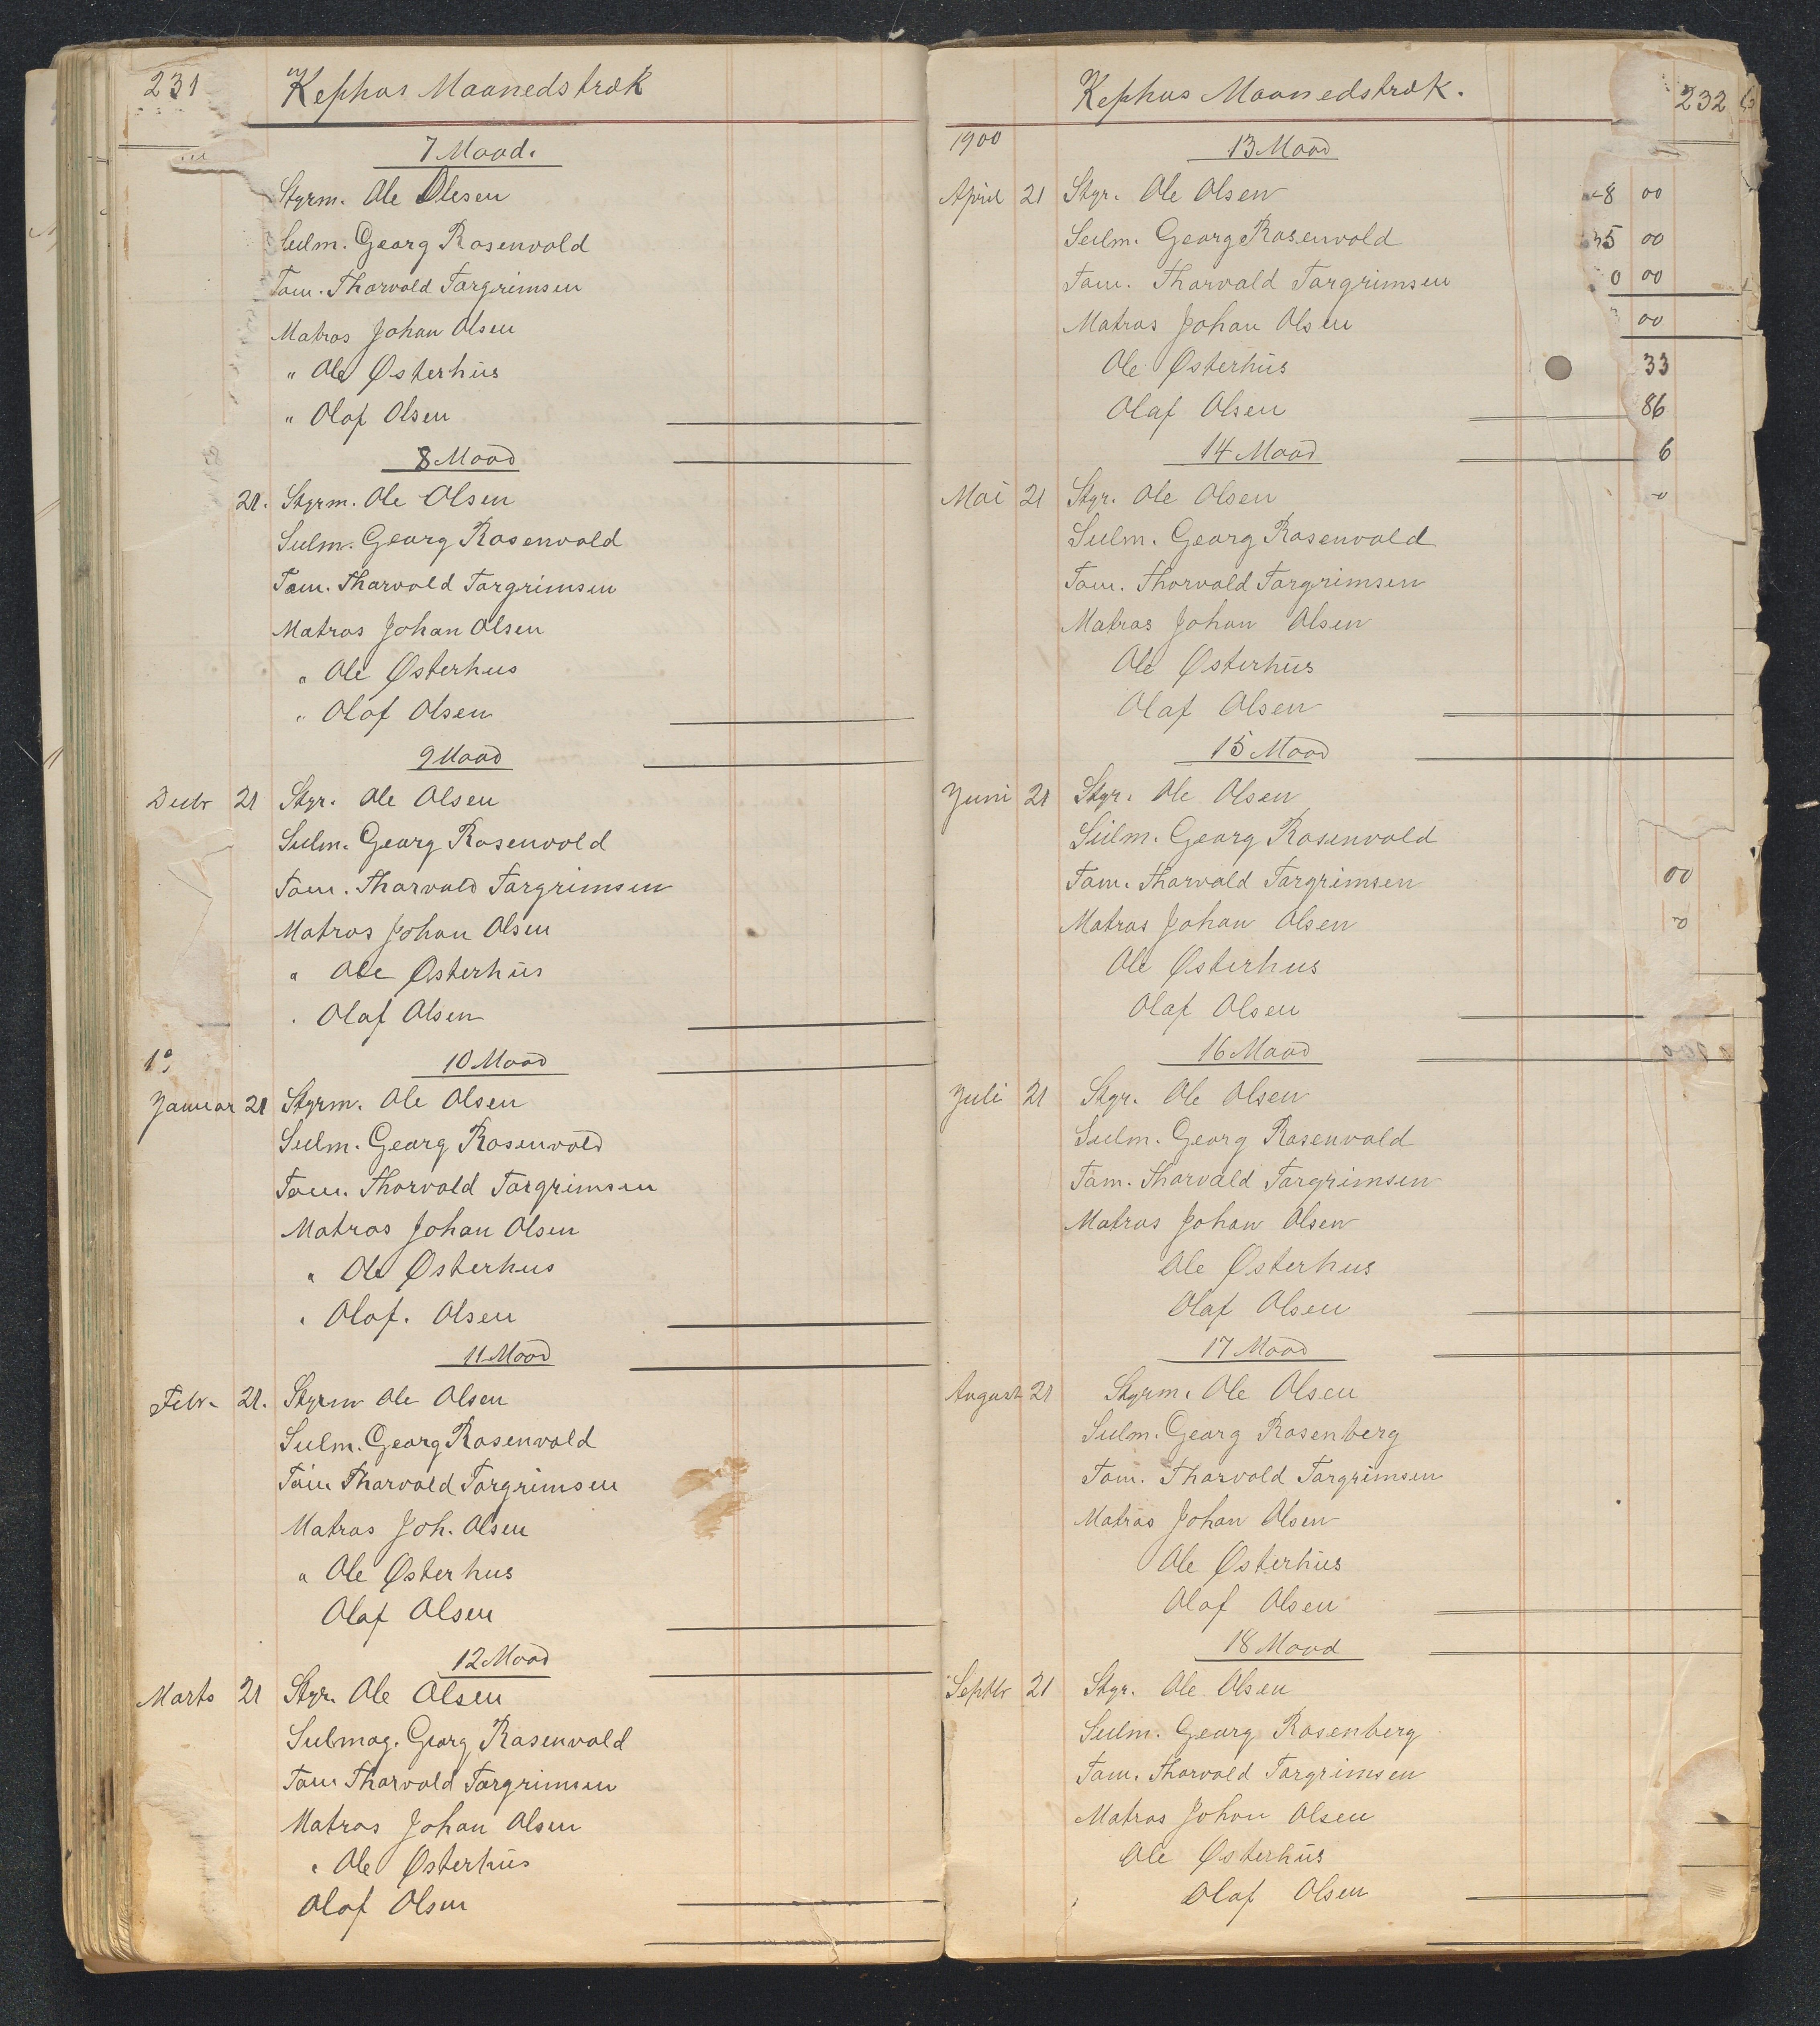 231
Kephas Maanedstræk
7 Maad.
Styrm. Ole Olesen
Seilm. Georg Rosenvold
Tøm. Thorvald Targrimsen
Matros Johan Olsen
" Ole Østerhus
" Olaf Olsen
8 Maad
21. Styrm. Ole Olsen
Seilm. Georg Rosenvold
Tøm. Tharvold Targrimsen
Matros Johan Olsen
" Ole Østerhus
" Olaf Olsen
9 Maad
Decbr 21 Styr. Ole Olsen
Seilm. Georg Rosenvold
Tøm. Tharvald Targrimsen
Matros Johan Olsen
" Ole Østerhus
" Olaf Olsen
10 Maad
Januar 21 Styrm. Ole Olsen
Seilm. Georg Rosenvold
Tøm. Thorvald Targrimsen
Matros Johan Olsen
" Ole Østerhus
" Olaf. Olsen
11 Maad
Febr. 21. Styrm Ole Olsen
Seilm. Georg Rosenvald
Tøm Tharvald Torgrimsen
Matros Joh. Olsen
" Ole Østerhus
Olaf Olsen
12 Maad
Marts 21 Styr. Ole Olsen
Seilmag. Georg Rosenvold
Tøm Tharvald Targrimsen
Matros Johan Olsen
" Ole Østerhus
Olaf Olsen
Kephas Maanedstræk.
232
1900
13 Maad
April 21 Styr. Ole Olsen 8 00
Seilm. Georg Rosenvold 35 00
Tøm. Tharvald Targrimsen 0 00
Matros Johan Olsen 00
Ole Østerhus 33
Olaf Olsen 86
14 Maad 6
Mai 21 Styr. Ole Olsen
Seilm. Georg Rosenvold
Tøm. Thorvald Targrimsen
Matros Johan Olsen
Ole Østerhus
Olaf Olsen
15 Maad
Juni 21 Styr. Ole Olsen
Seilm. Georg Rosenvold
Tøm. Tharvald Targrimsen 00
Matros Johan Olsen
Ole Østerhus
Olaf Olsen
16 Maad
Juli 21 Styr. Ole Olsen
Seilm. Georg Rosenvald
Tøm. Tharvald Targrimsen
Matros Johan Olsen
Ole Østerhus
Olaf Olsen
17 Maad
August 21 Styrm. Ole Olsen
Seilm. Georg Rosenberg
Tøm. Tharvold Targrimsen
Matros Johan Olsen
Ole Østerhus
Olaf Olsen
18 Maad
Septbr 21 Styr. Ole Olsen
Seilm. Georg Rosenberg
Tøm. Tharvold Targrimsen
Matros Johan Olsen
Ole Østerhus
Olaf Olsen